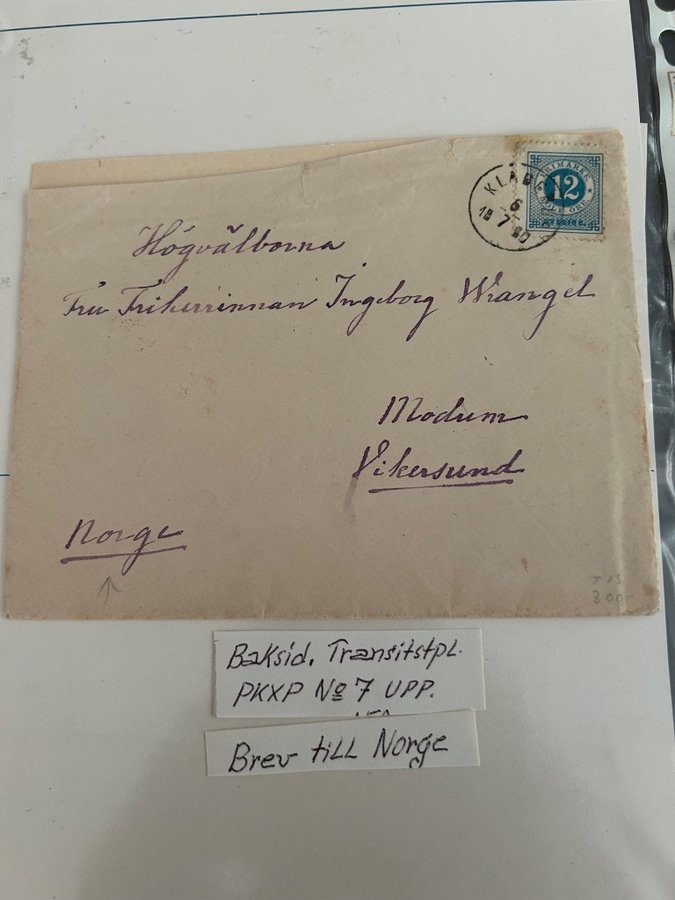 KLÄD
6
18 7 90
FRIMÄRKE
12
TOLV ÖRE
SVERIGE
Högvälborna
Fru Friherrinnan Ingeborg Wrangel
Modum
Vikersund
Norge
300-
Baksid. Transitstpl.
PKXP No 7 UPP.
Brev till Norge